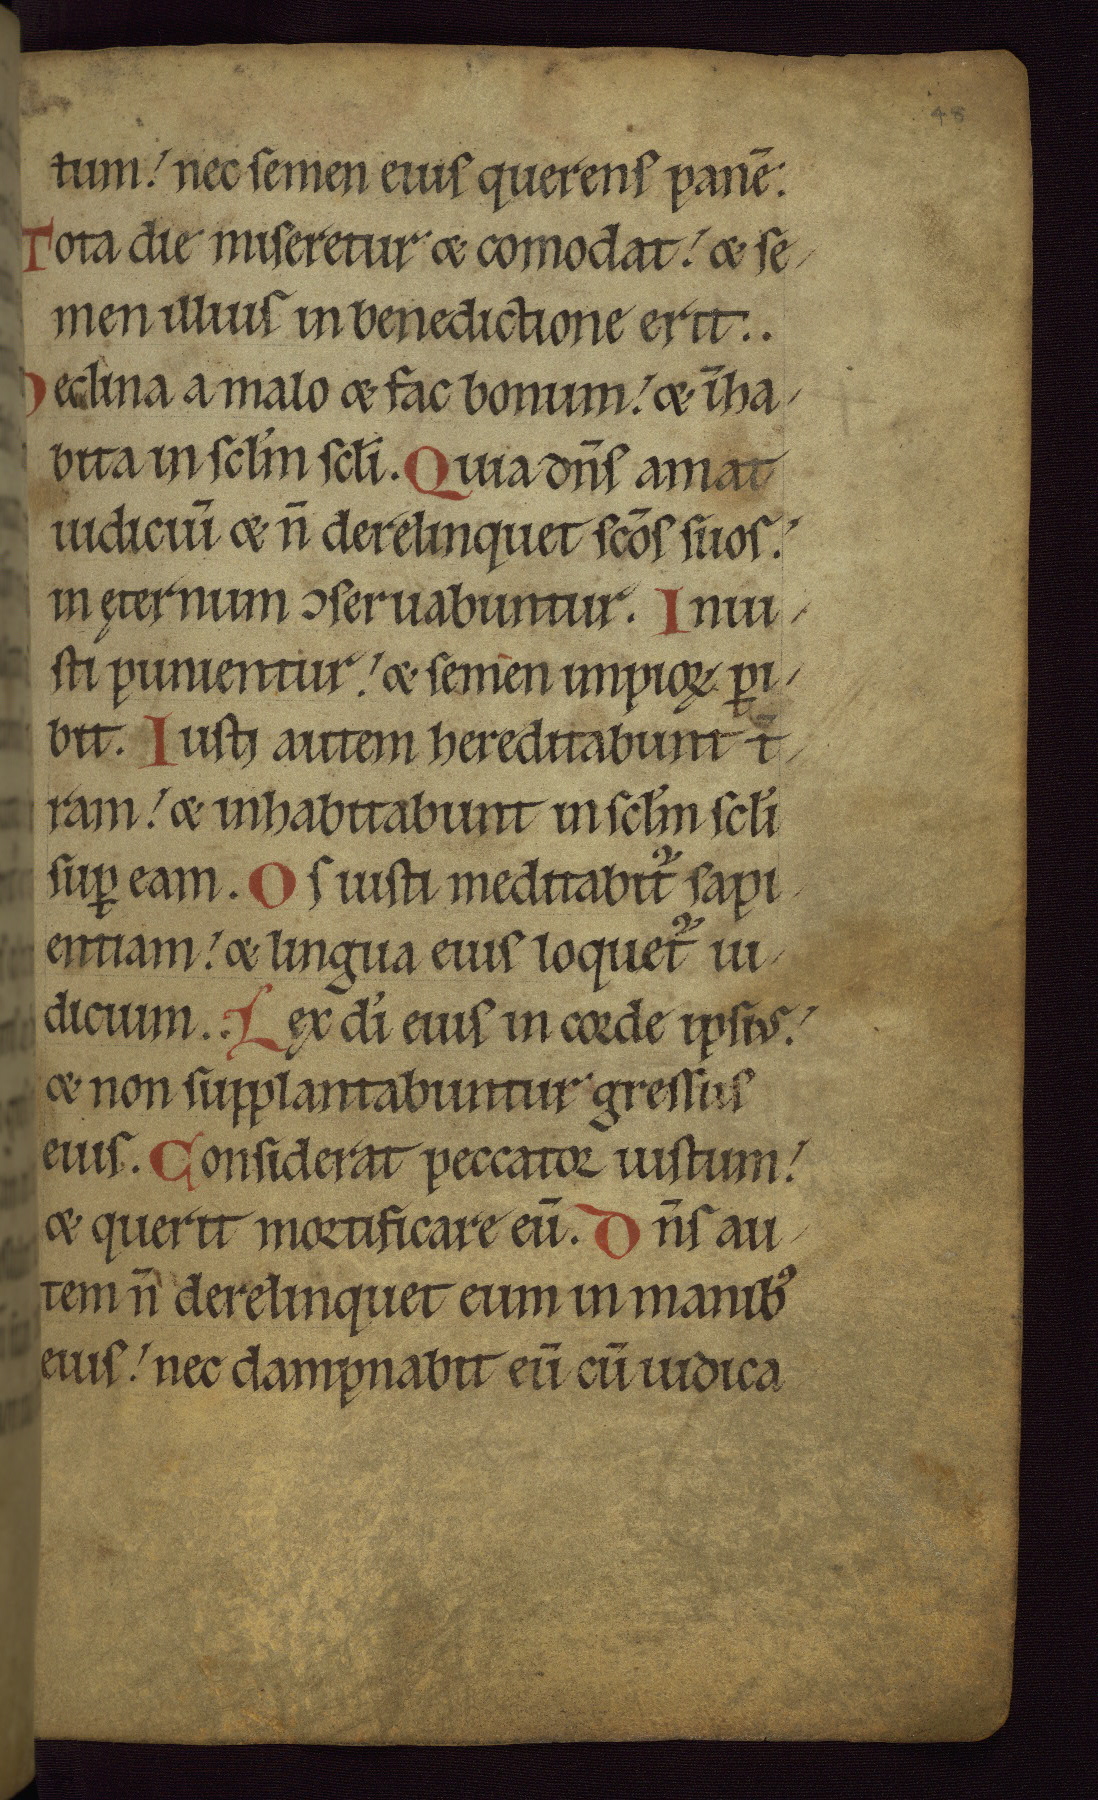 48
tum! nec semen eius querens panē.
Tota die miseretur & comodat! & se-
men illius in benedictione erit..
Declina a malo & fac bonum! & īha-
bita in sclm̄ scli̅. Quia dn̄s amat
iudiciū & n̄ derelinquet scōs suos!
in ęternum ɔseruabuntur. Iniu-
sti punientur! & semen impioꝝ ꝑi-
bit. Iusti autem hereditabunt t̄-
ram! & inhabitabunt in sclm̄ scli̅
suꝑ eam. Os iusti meditabit᷑ sapi-
entiam! & lingua eius loquet᷑ iu-
dicium.. Lex di̅ eius in corde ipsius!
& non supplantabuntur gressus
eius. Considerat peccator iustum!
& querit mortificare eū. Dn̄s au-
tem n̄ derelinquet eum in manibꝰ
eius! nec dampnabit eū cū iudica